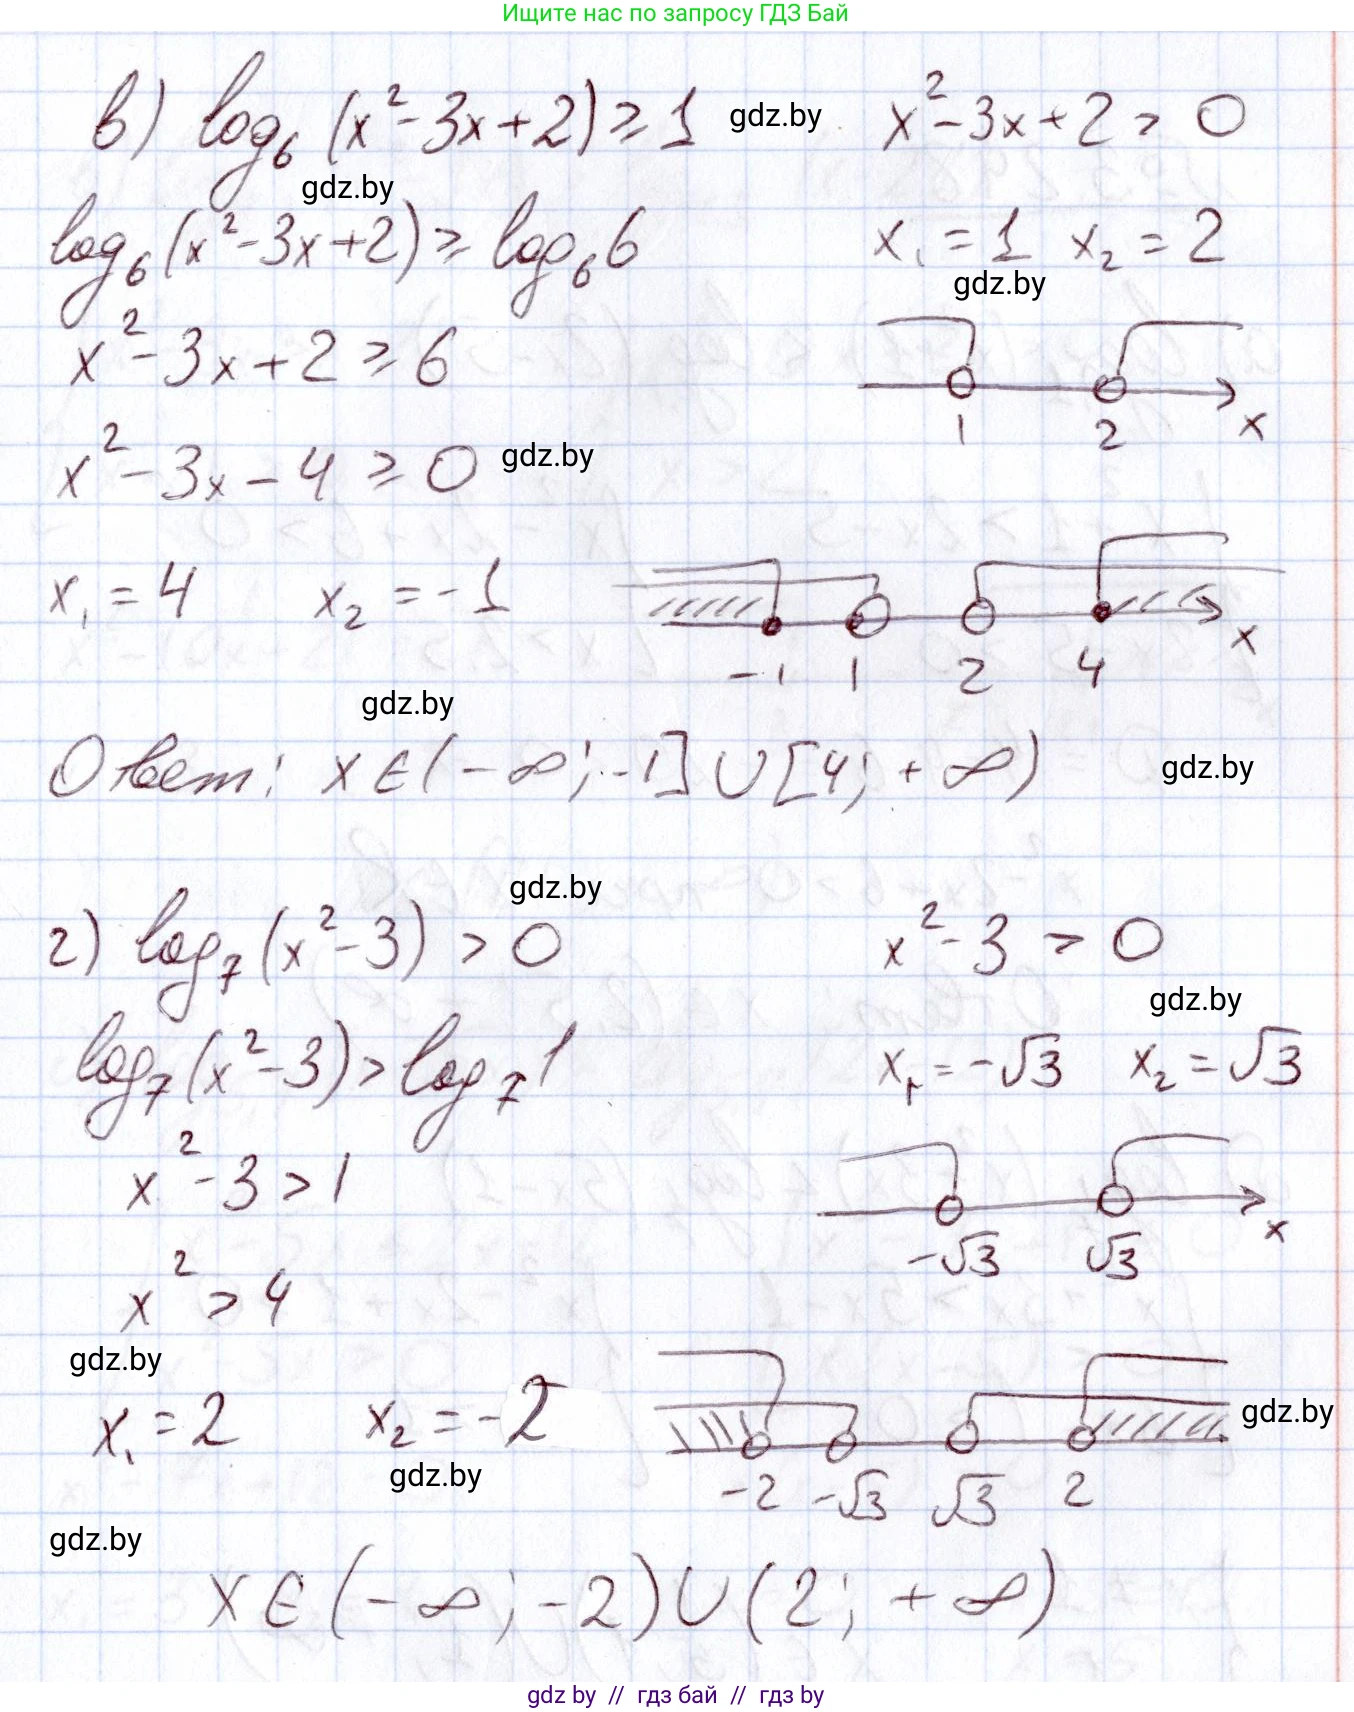 Ищите нас по запросу ГДЗ Бай
в) log₆ (x² - 3x + 2) ≥ 1 gdz.by x² - 3x + 2 > 0
gdz.by
log₆ (x² - 3x + 2) ≥ log₆ 6 x₁ = 1 x₂ = 2
gdz.by
x² - 3x + 2 ≥ 6
1 2 x
x² - 3x - 4 ≥ 0 gdz.by
x₁ = 4 x₂ = -1
-1 1 2 4 x
gdz.by
Ответ: x ∈ (-∞; -1] ∪ [4; +∞) gdz.by
gdz.by
г) log₇ (x² - 3) > 0 x² - 3 > 0
gdz.by
log₇ (x² - 3) > log₇ 1 x₁ = -√3 x₂ = √3
x² - 3 > 1
-√3 √3 x
x² > 4
gdz.by
x₁ = 2 x₂ = -2 gdz.by
gdz.by -2 -√3 √3 2
gdz.by
x ∈ (-∞; -2) ∪ (2; +∞)
gdz by // гдз бай // гдз by